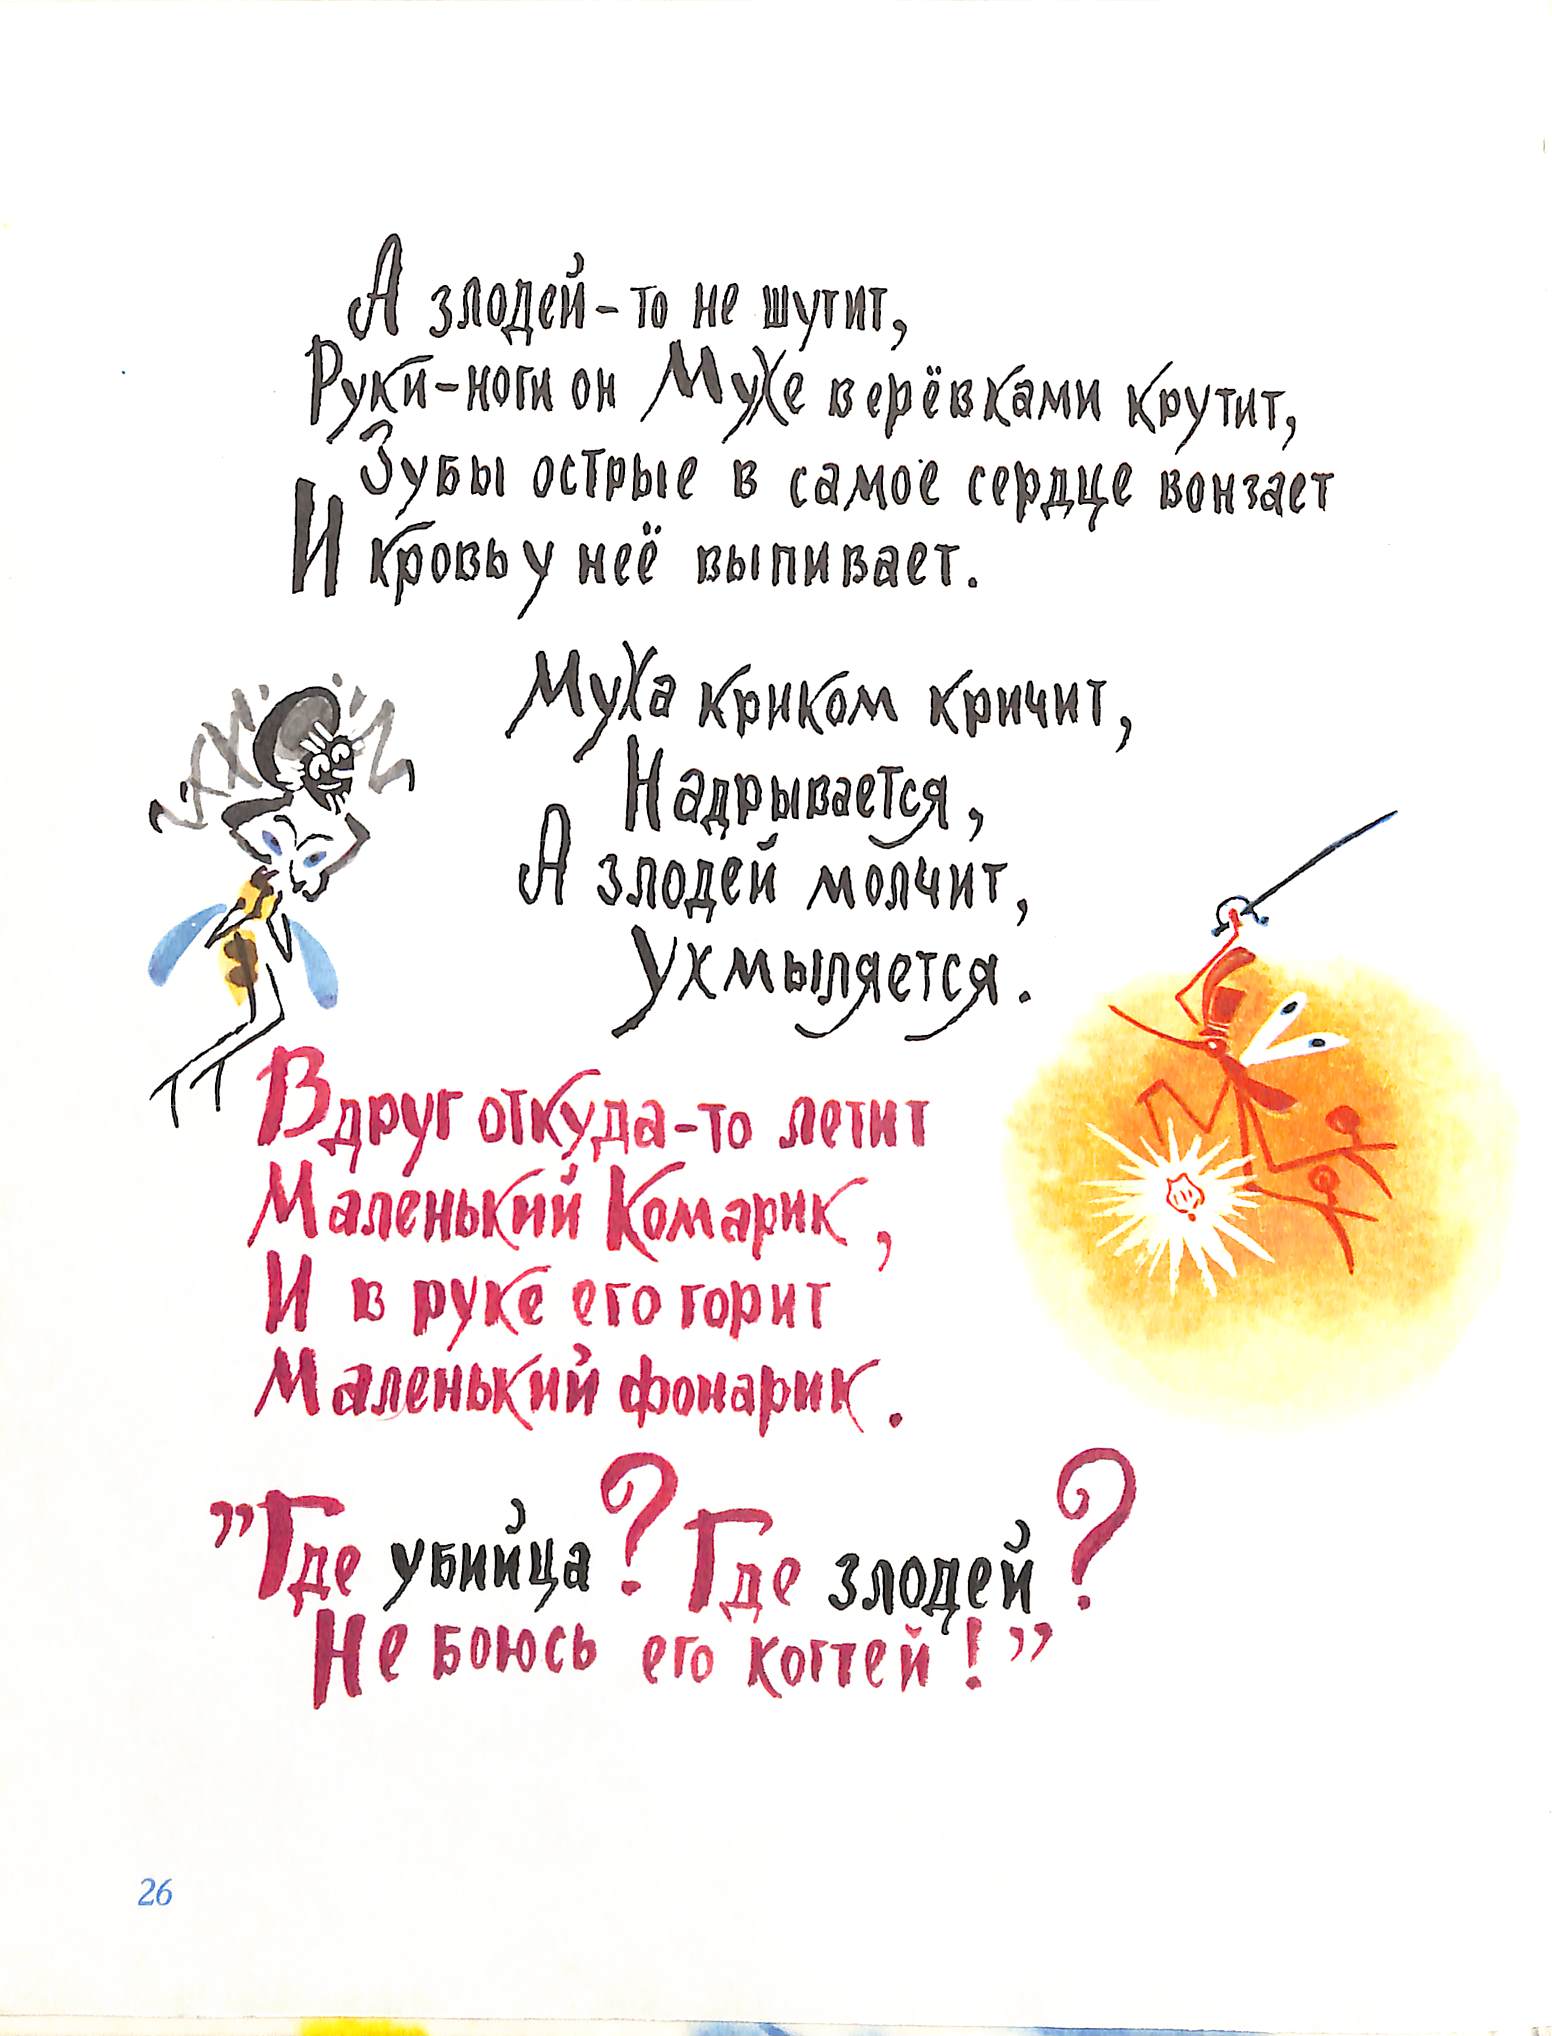 А злодей-то не шутит,
Руки-ноги он Мухе верёвками крутит,
Зубы острые в самое сердце вонзает
И кровь у неё выпивает.
Муха криком кричит,
Надрывается,
А злодей молчит,
Ухмыляется.
Вдруг откуда-то летит
Маленький Комарик,
И в руке его горит
Маленький фонарик.
"Где убийца? Где злодей?
Не боюсь его когтей!"
26